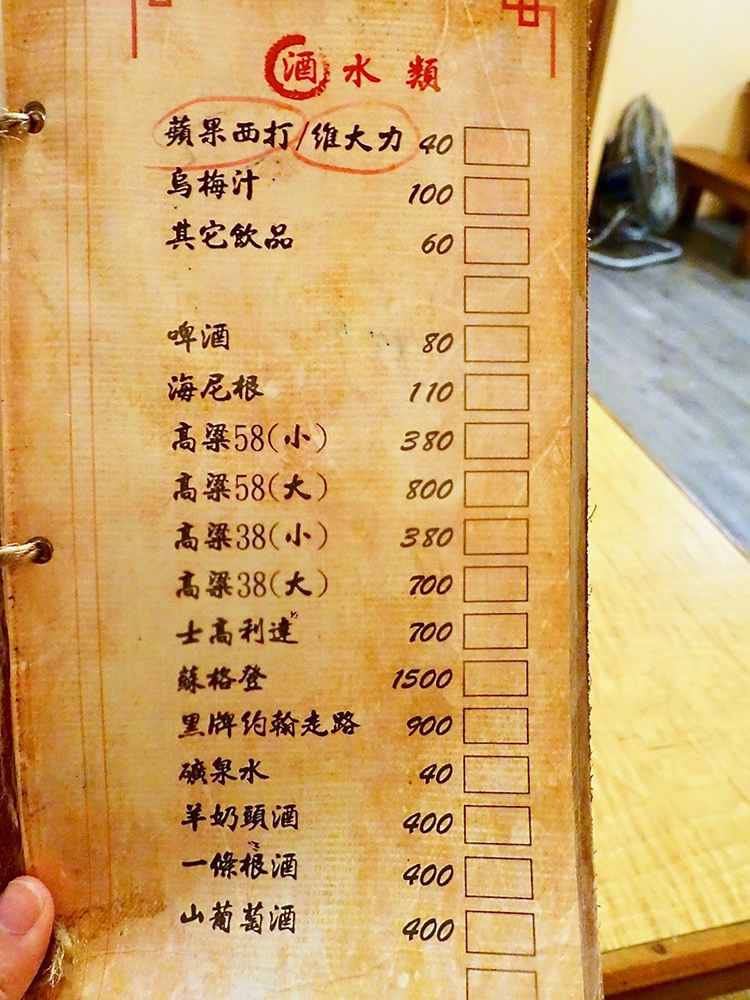 酒水類
蘋果西打/維大力 40
烏梅汁 100
其它飲品 60
啤酒 80
海尼根 110
高粱58(小) 380
高粱58(大) 800
高粱38(小) 380
高粱38(大) 700
士高利達 700
蘇格登 1500
黑牌約翰走路 900
礦泉水 40
羊奶頭酒 400
一條根酒 400
山葡萄酒 400